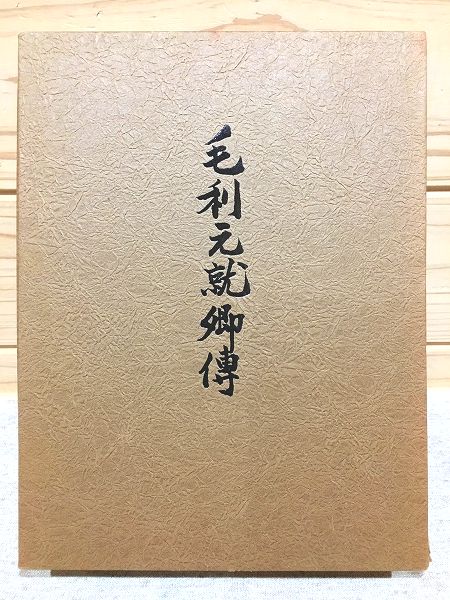 毛利元就卿傳